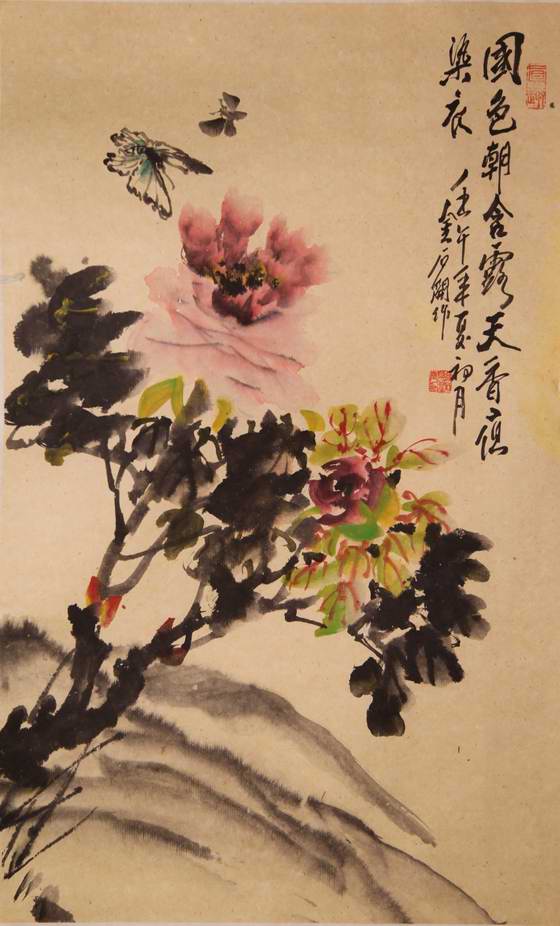 國色朝含露天香夜
染衣
壬午年夏初月
金石開作